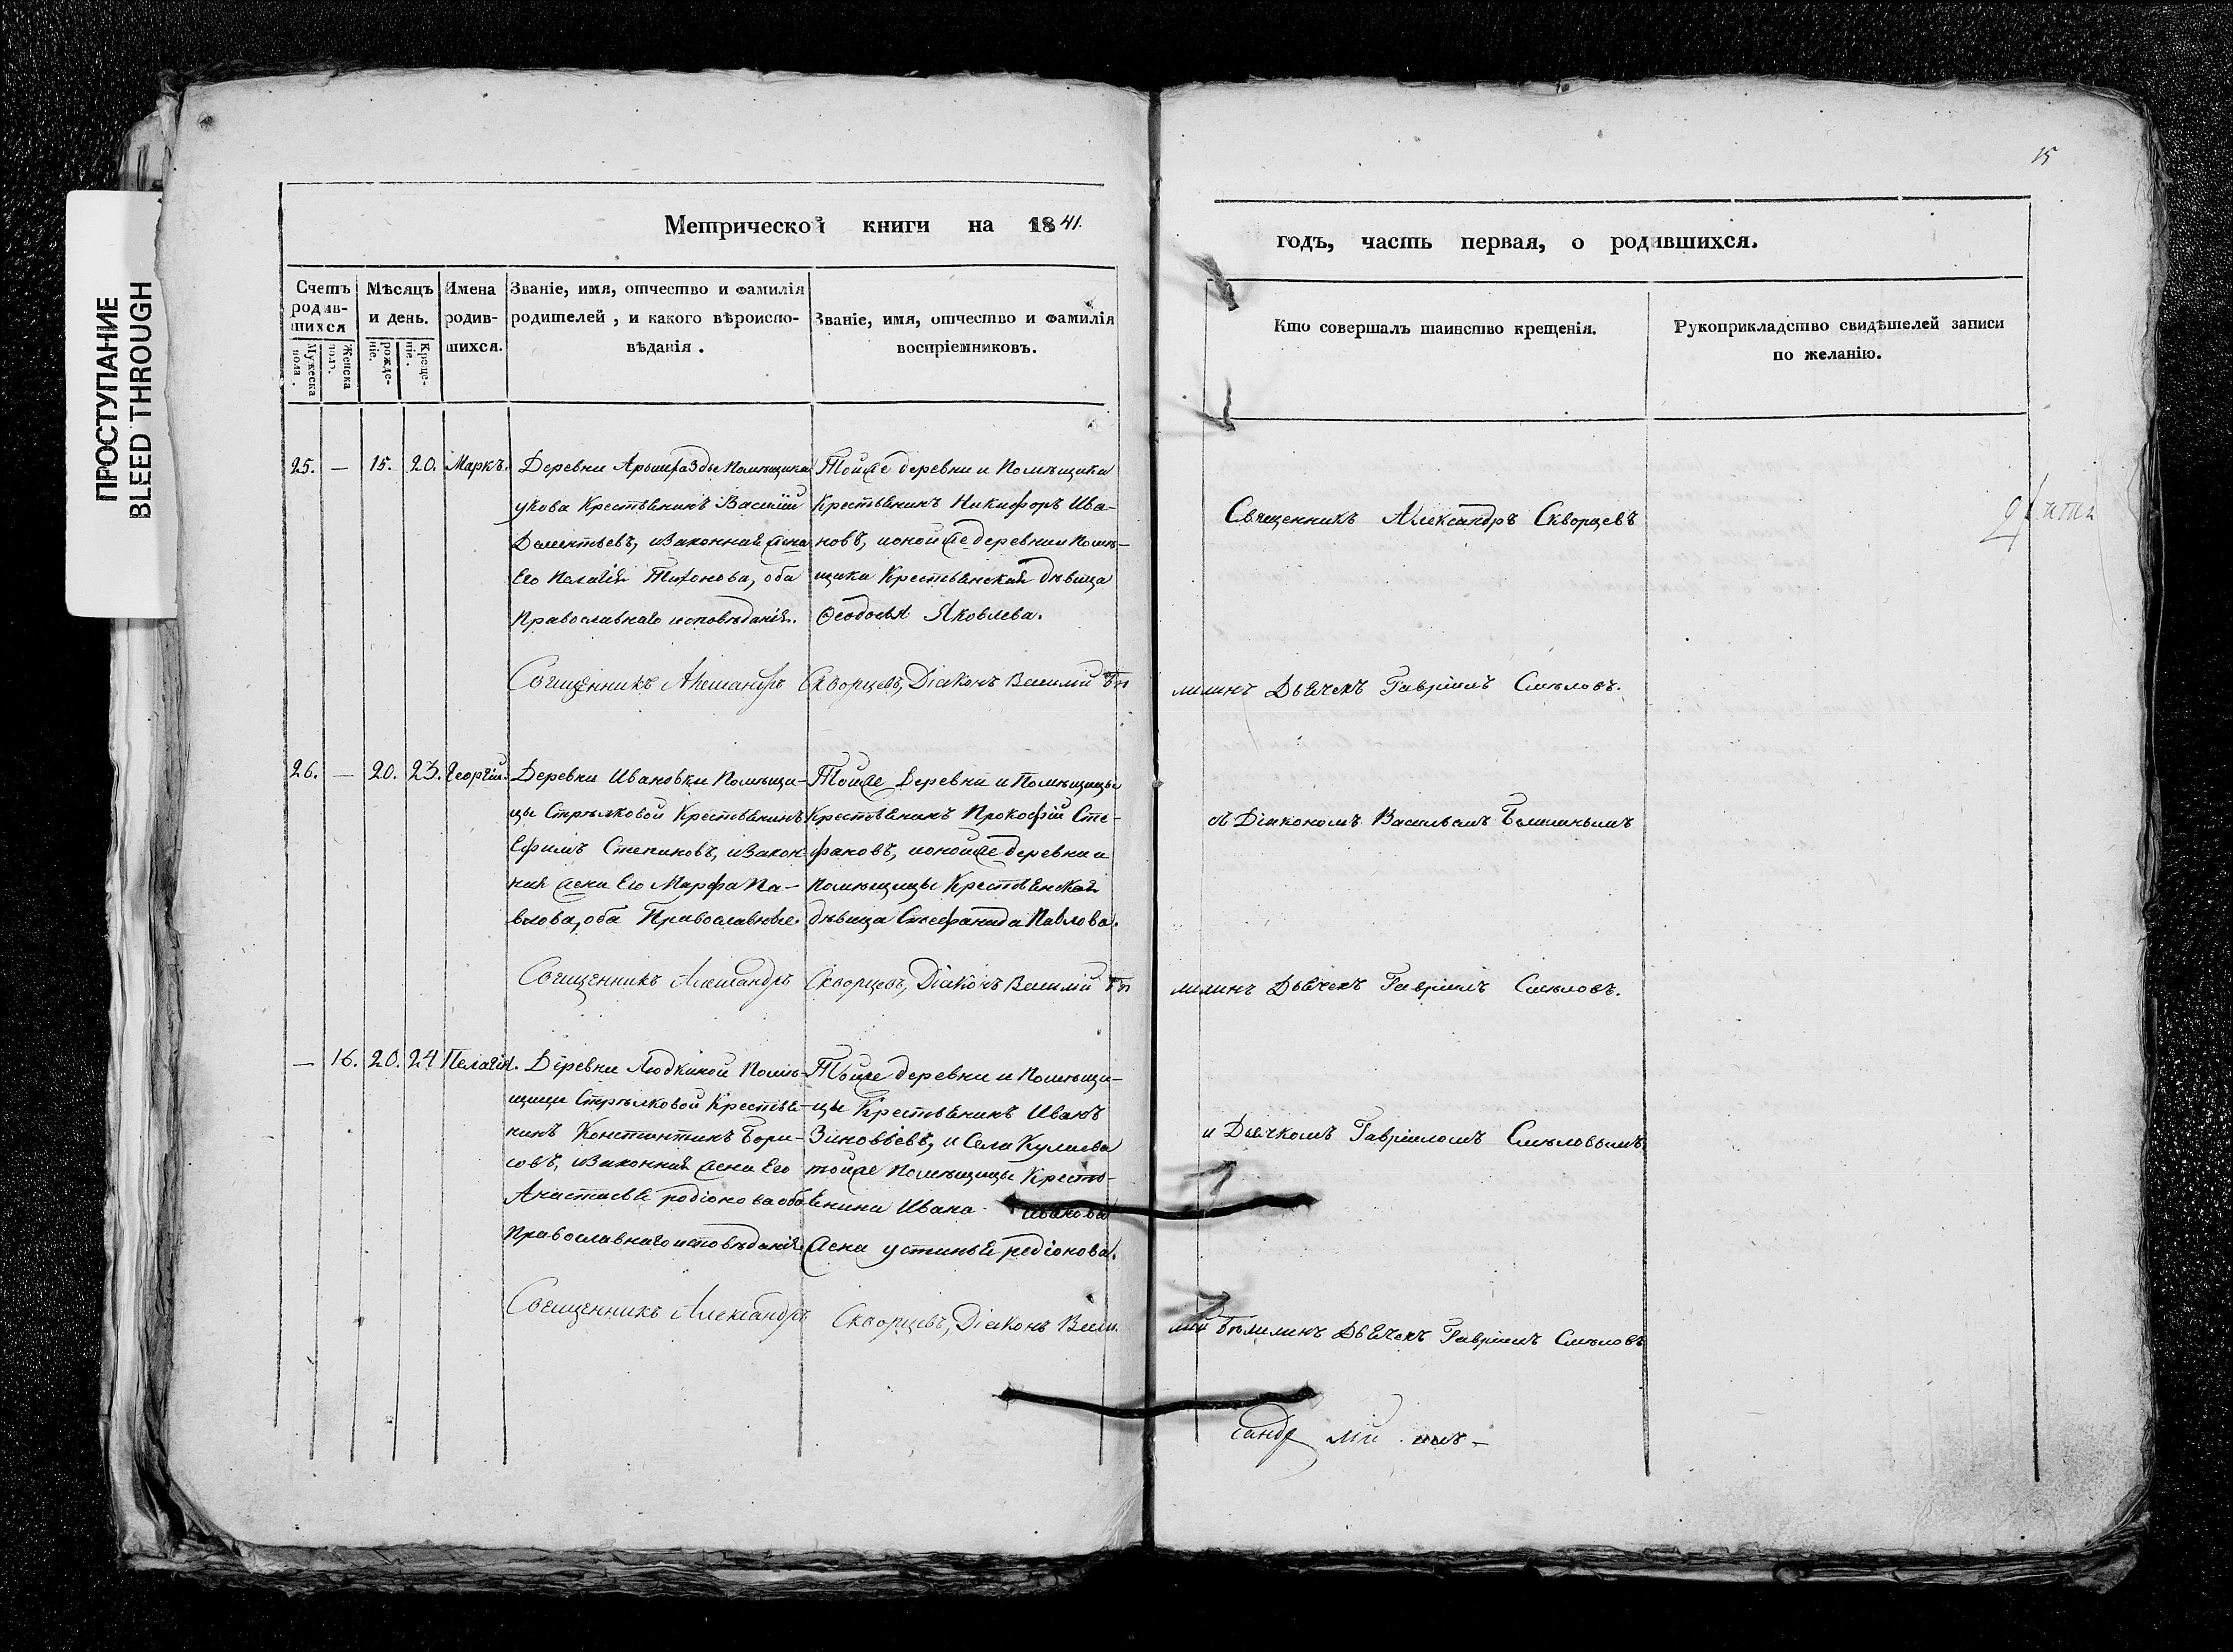 ПРОСТУПАНИЕ
BLEED THROUGH
15
Метрической книги на 1841.
годъ, часть первая, о родившихся.
Счетъ родив-шихся
Мужеска пола.
Женска пола.
Мѣсяцъ и день.
рожде-ніе.
Креще-ніе.
Имена родив-шихся.
Званіе, имя, отчество и фамилія
родителей, и какого вѣроиспо-
вѣданія.
Званіе, имя, отчество и фамилія
воспріемниковъ.
Кто совершалъ таинство крещенія.
Рукоприкладство свидѣтелей записи
по желанію.
25. — 15. 20. Маркъ.
Деревни Помѣщика
Крестьянинъ Василій
Дементьевъ, и Законная жена
Его Пелагія Тихонова, оба
Православнаго исповѣданія.
Тойже деревни и Помѣщика
Крестьянинъ Никифоръ Ива-
новъ, и онойже деревни и Помѣ-
щика Крестьянская дѣвица
Ѳеодосья Яковлева.
Священникъ Александръ Скворцевъ
Священникъ Александръ Скворцевъ, Діаконъ Василій Бѣлилинъ Дьячекъ Гавріилъ Смѣловъ.
26. — 20. 23. Георгій.
Деревни Ивановки Помѣщи-
цы Стрѣлковой Крестьянинъ
Ефимъ Степановъ, и Закон-
ная жена Его Марфа Па-
влова, оба Православные.
Тойже Деревни и Помѣщицы
Крестьянинъ Прокофій Сте-
фановъ, и онойже деревни и
Помѣщицы Крестьянская
дѣвица Стефанида Павлова.
съ Діакономъ Васильемъ Бѣлилинымъ
Священникъ Александръ Скворцевъ, Діаконъ Василій Бѣлилинъ Дьячекъ Гавріилъ Смѣловъ.
— 16. 20. 24 Пелагія.
Деревни Людкиной Помѣ-
щицы Стрѣлковой Крестья-
нинъ Константинъ Бори-
совъ, и Законная жена Его
Анастасья родіонова оба
Православнаго исповѣданія.
Тойже деревни и Помѣщи-
цы Крестьянинъ Иванъ
Зиновьевъ, и Села
тойже Помѣщицы Кресть-
янина Ивана
жена устинья родіонова.
и Дьячкомъ Гавріиломъ Смѣловымъ
Священникъ Александръ Скворцевъ, Діаконъ Василій Бѣлилинъ Дьячекъ Гавріилъ Смѣловъ
сандр